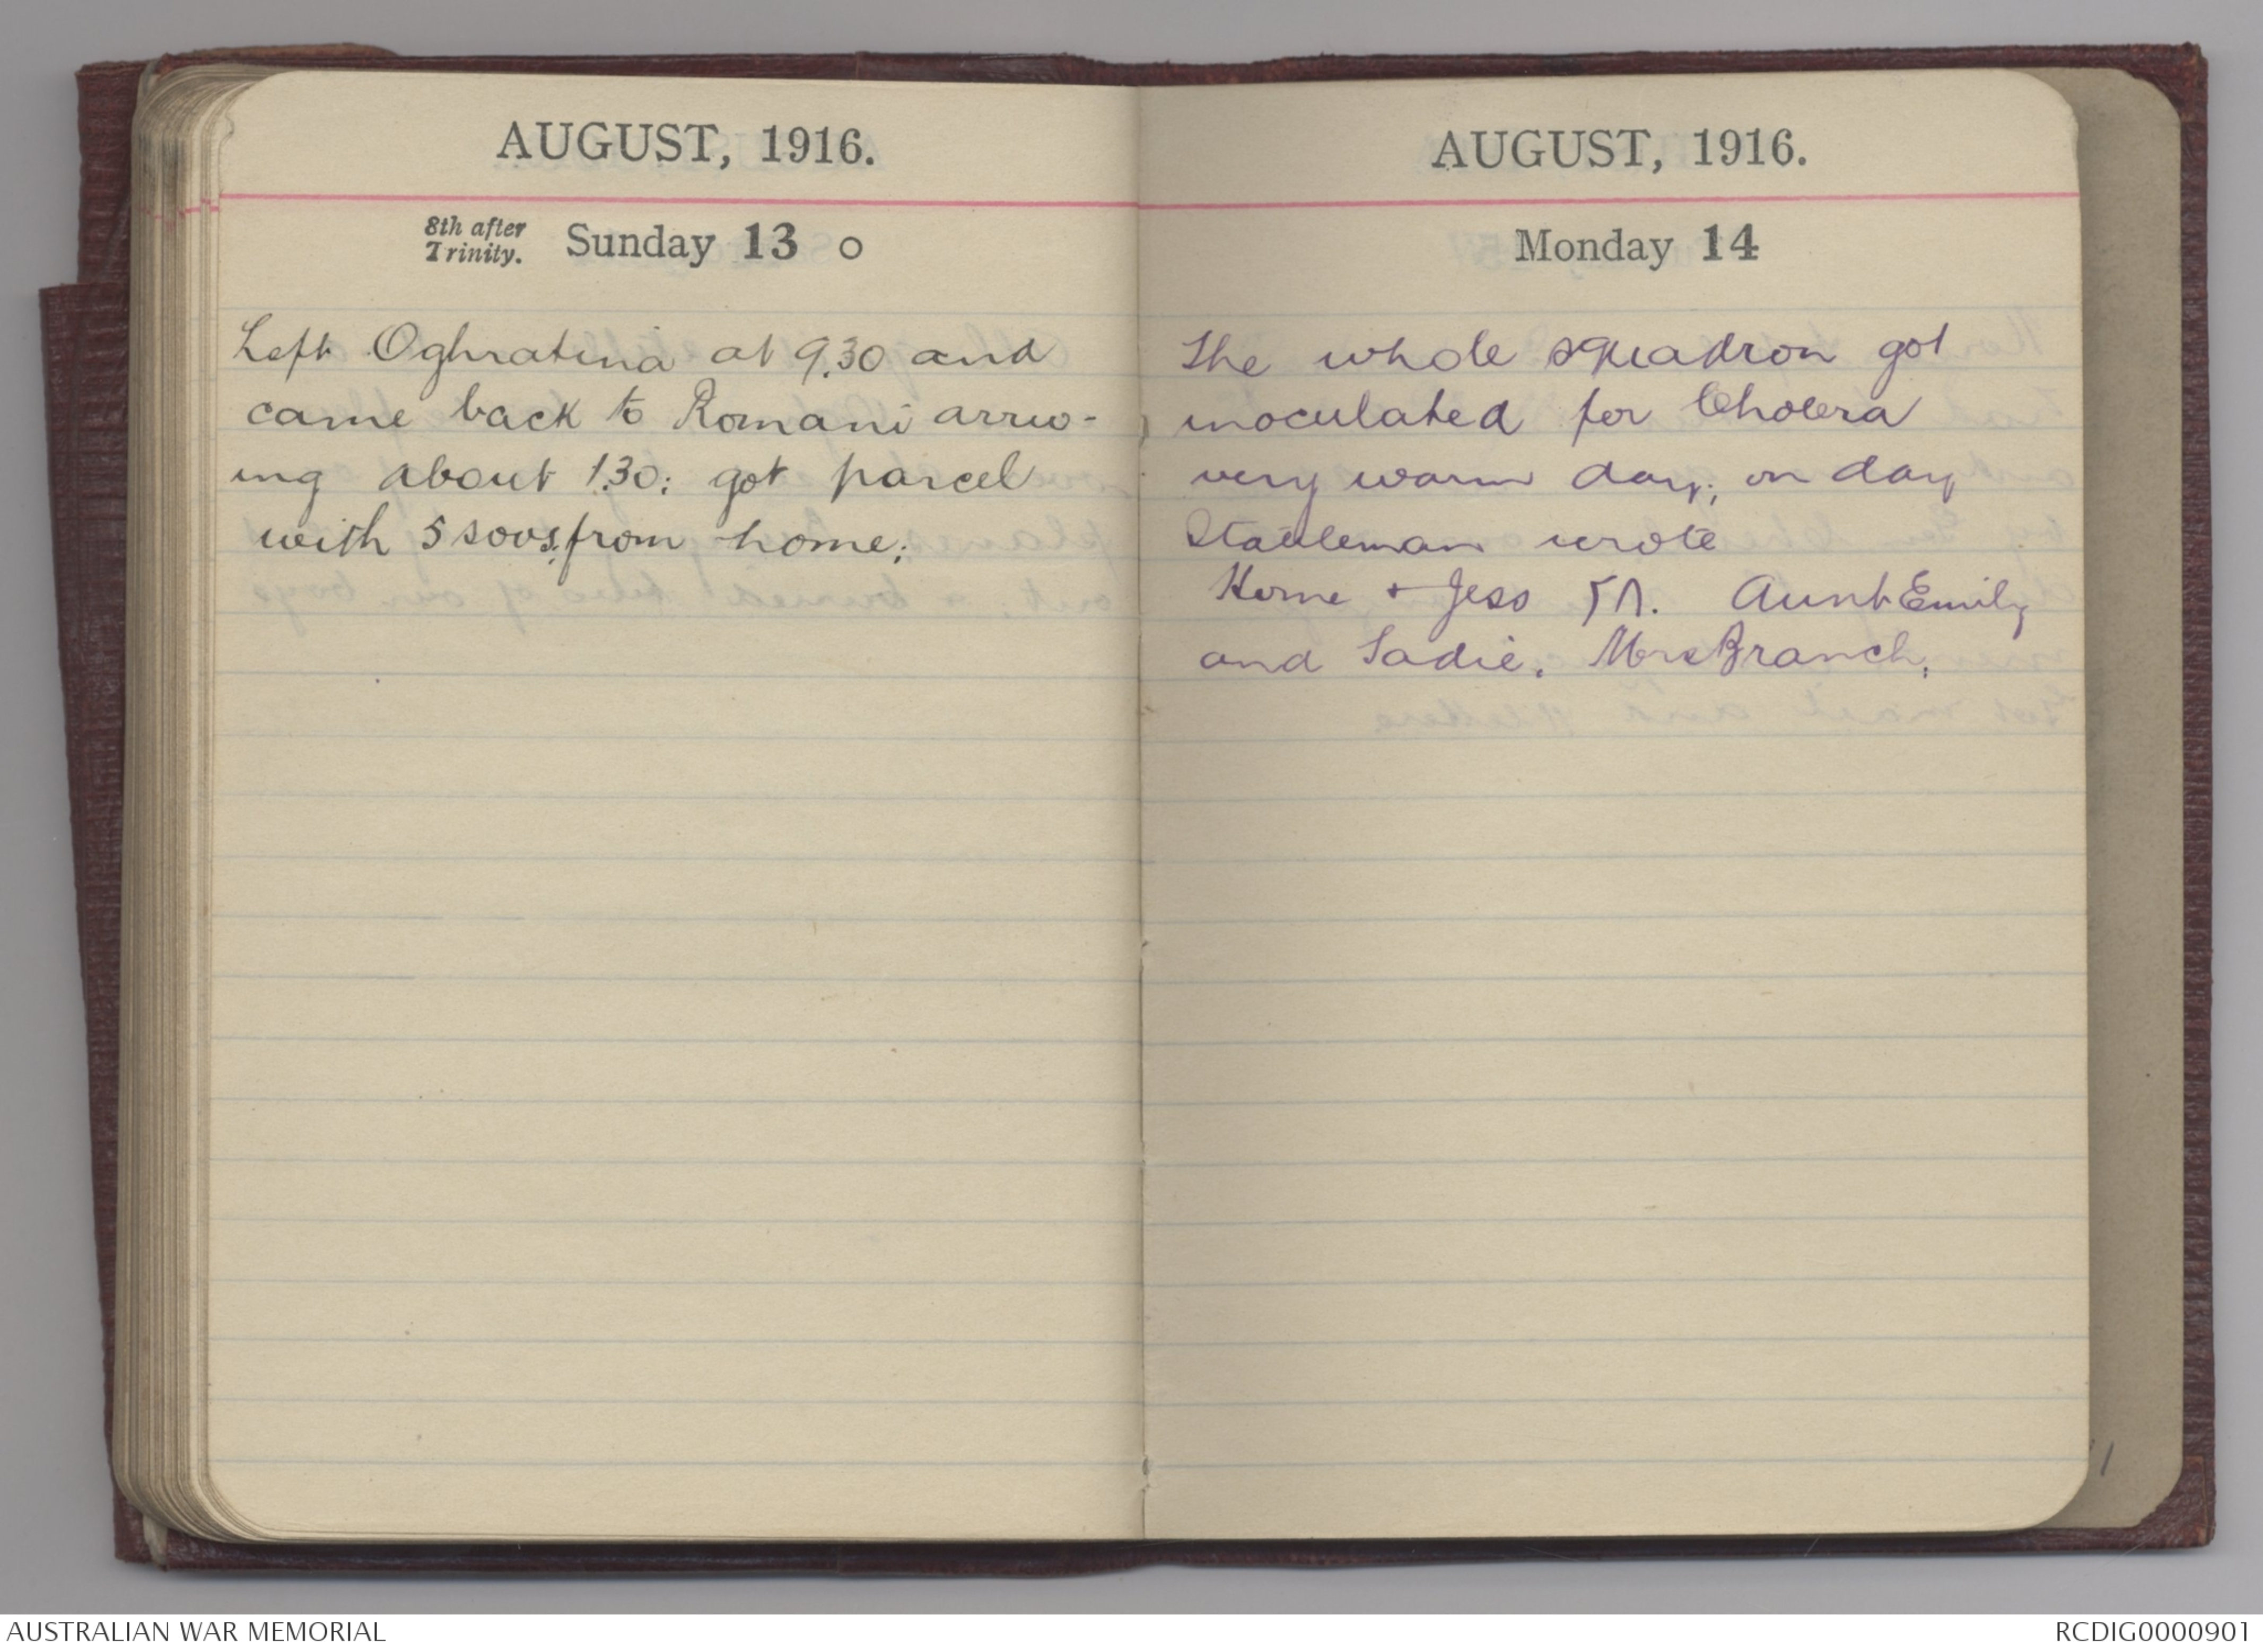 AUGUST, 1916.
8th after
Trinity. Sunday 13 o
Left Oghratina at 9.30 and
came back to Romani arriv-
ing about 1.30; got parcel
with 5 sovs, from home;
AUGUST, 1916.
Monday 14
The whole squadron got
inoculated for Cholera
very warm day; on day
Stableman wrote
Home + Jess Aunt Emily
and Sadie. Mrs Branch.
AUSTRALIAN WAR MEMORIAL
RCDIG0000901